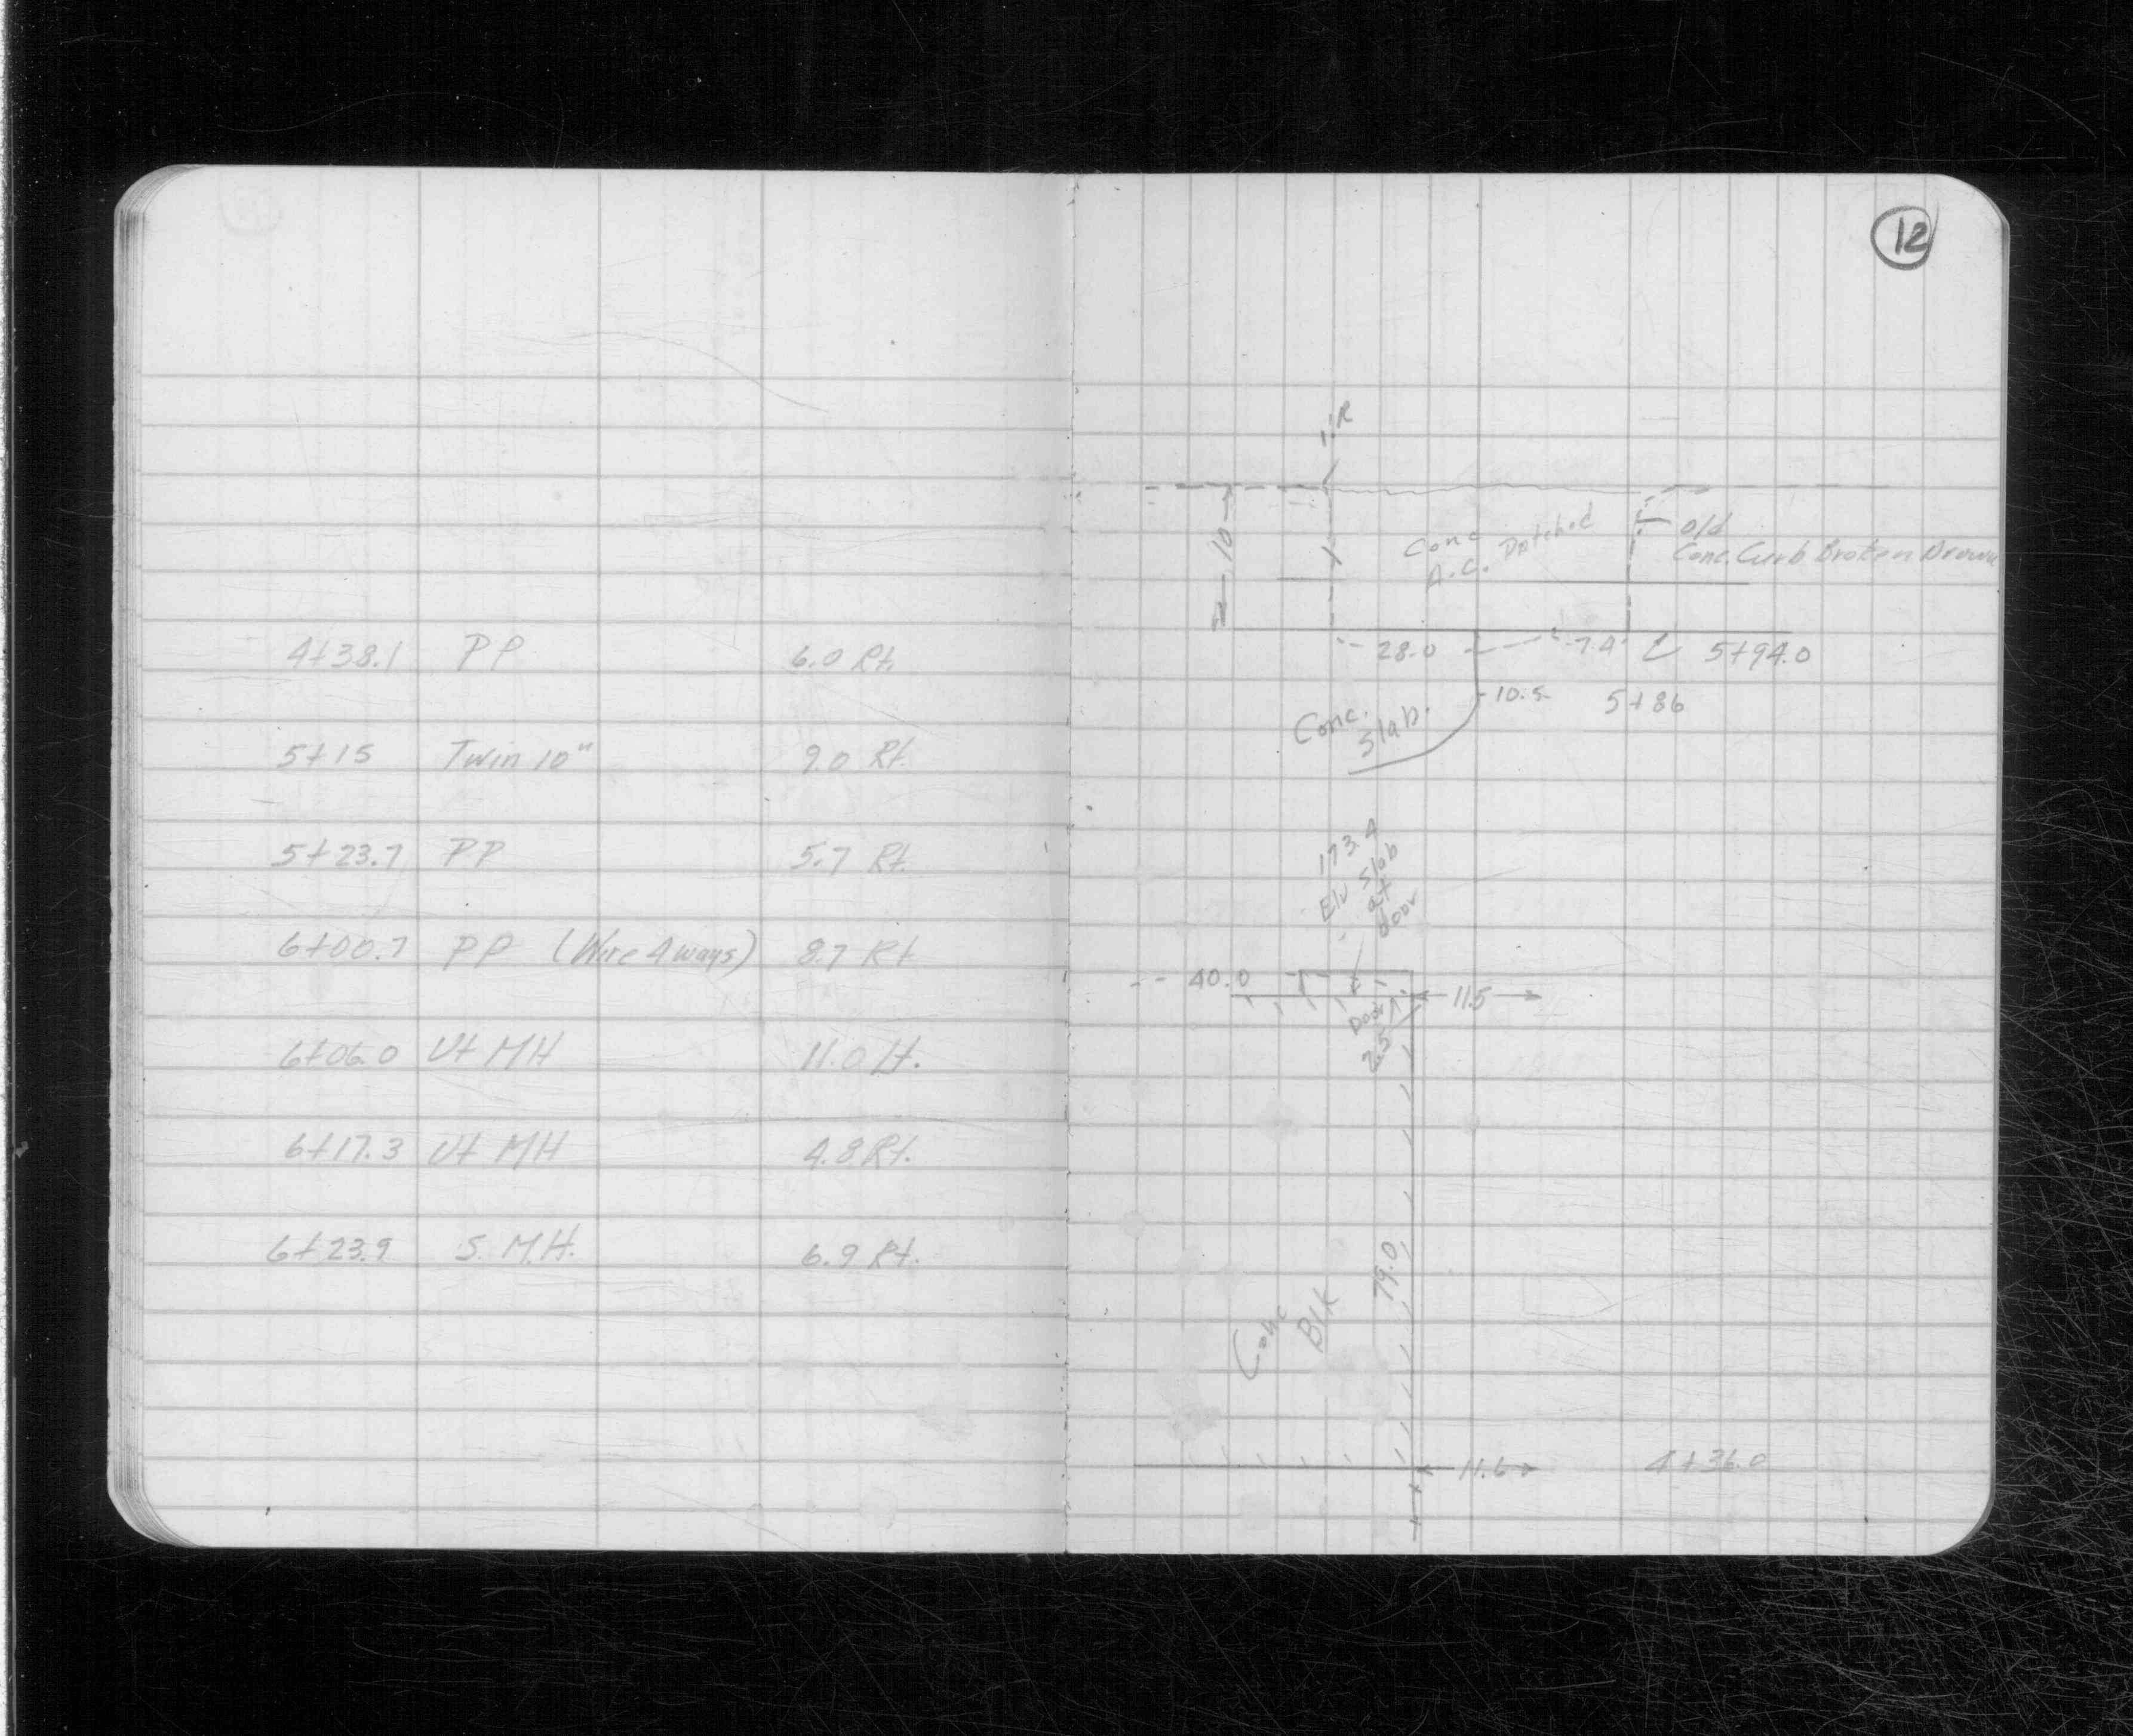 12
4+38.1 PP 6.0 Rt.
5+15 Twin 10" 9.0 Rt.
5+23.7 PP 5.7 Rt.
6+00.7 PP (Wire 4 ways) 8.7 Rt
6+06.0 Ut MH 11.0 Lt.
6+17.3 Ut MH 4.8 Rt.
6+23.9 S. M.H. 6.9 Rt.
10
Conc
A.C. Patched
Old
Conc. Curb Broken Down
28.0 7.4 5+94.0
10.5 5+86
Conc.
Slab.
173.4
Elv Slab
at
door
40.0
11.5
Door
2.5
79.0
Conc
Blk
11.6 4+36.0